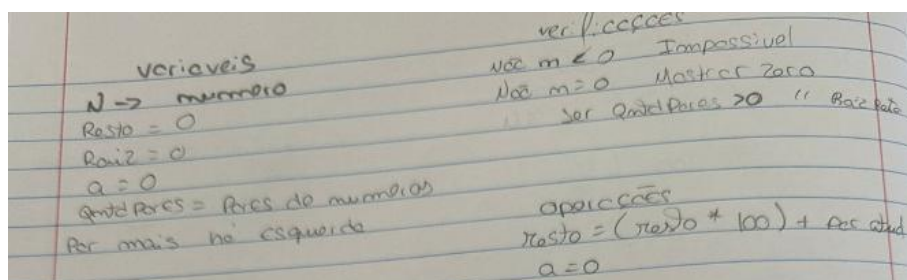 variaveis
N -> numero
Resto = 0
Raiz = 0
a = 0
QntdPares = Pares do numeros
Par mais na esquerda
verificações
Não n < 0 Impossivel
Não n = 0 Mostrar Zero
Ser QntdPares > 0 "
operações
resto = (resto * 100) + par atual
a = 0